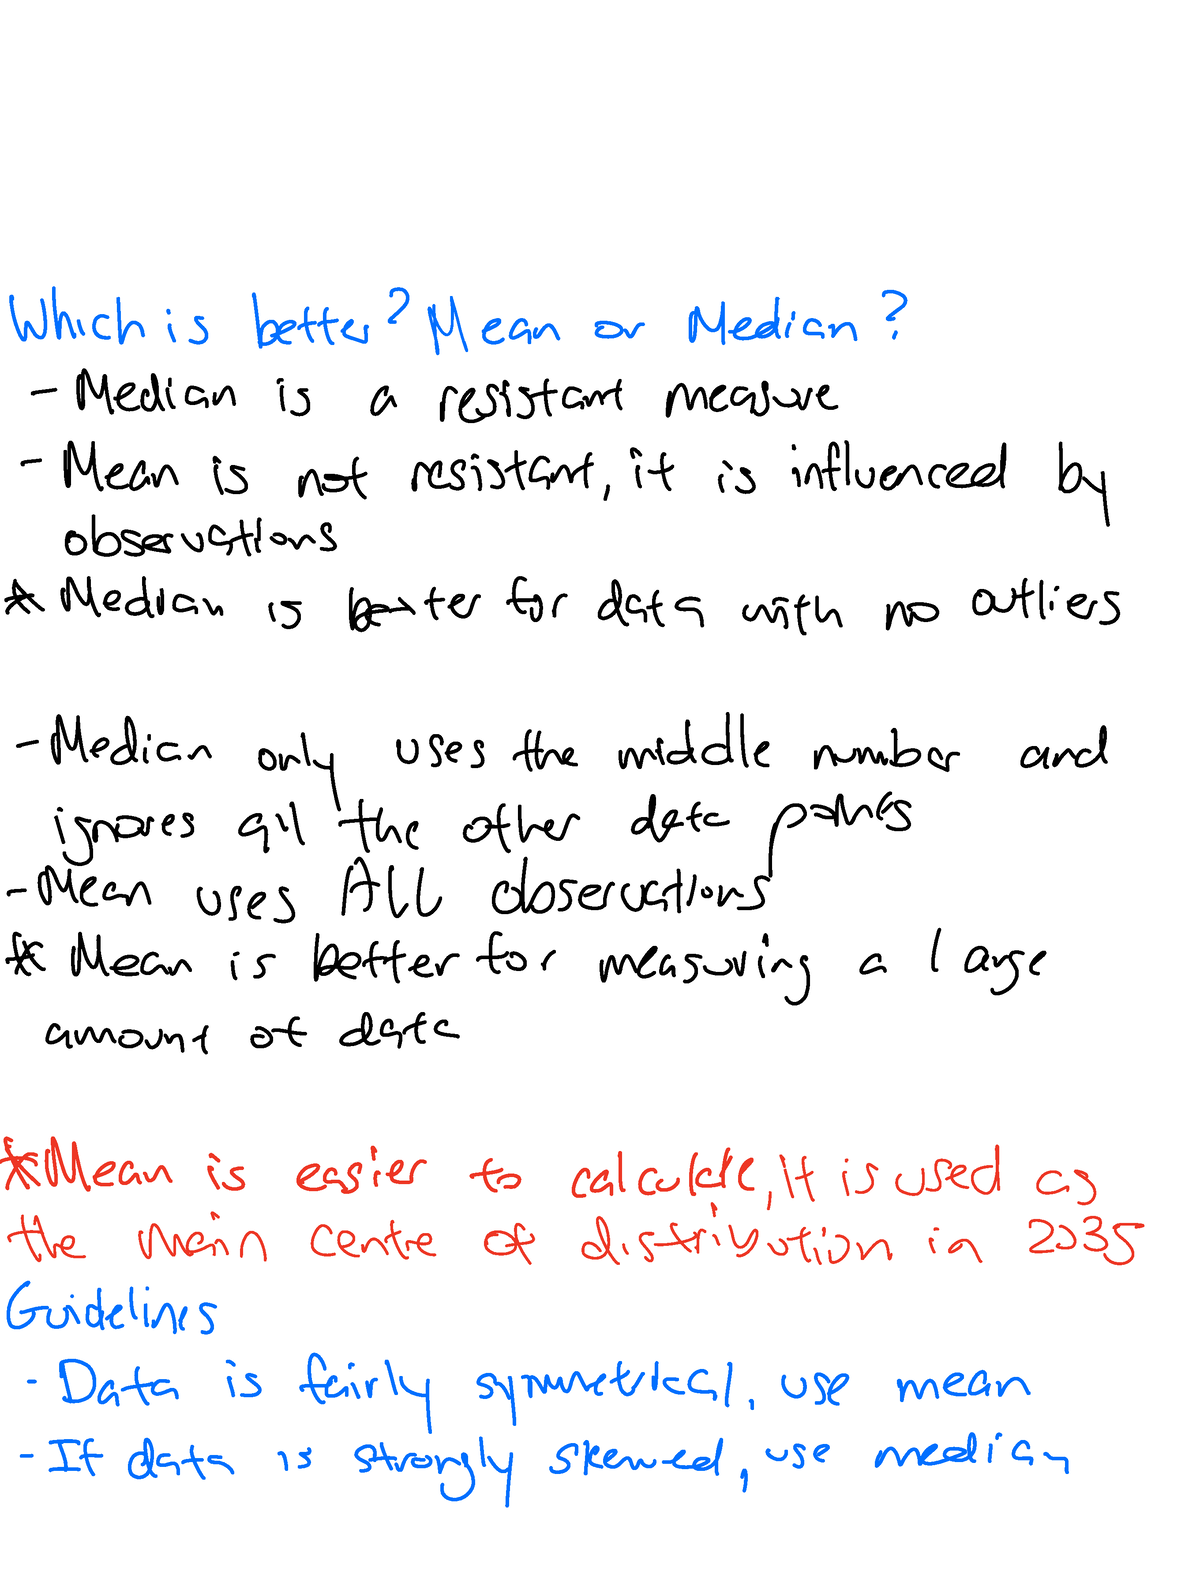 Which is better? Mean or Median?
- Median is a resistant measure
- Mean is not resistant, it is influenced by
observations
* Median is better for data with no outliers
- Median only uses the middle number and
ignores all the other data points
- Mean uses ALL observations
* Mean is better for measuring a large
amount of data
* Mean is easier to calculate, it is used as
the main centre of distribution in 2035
Guidelines
- Data is fairly symmetrical, use mean
- If data is strongly skewed, use median